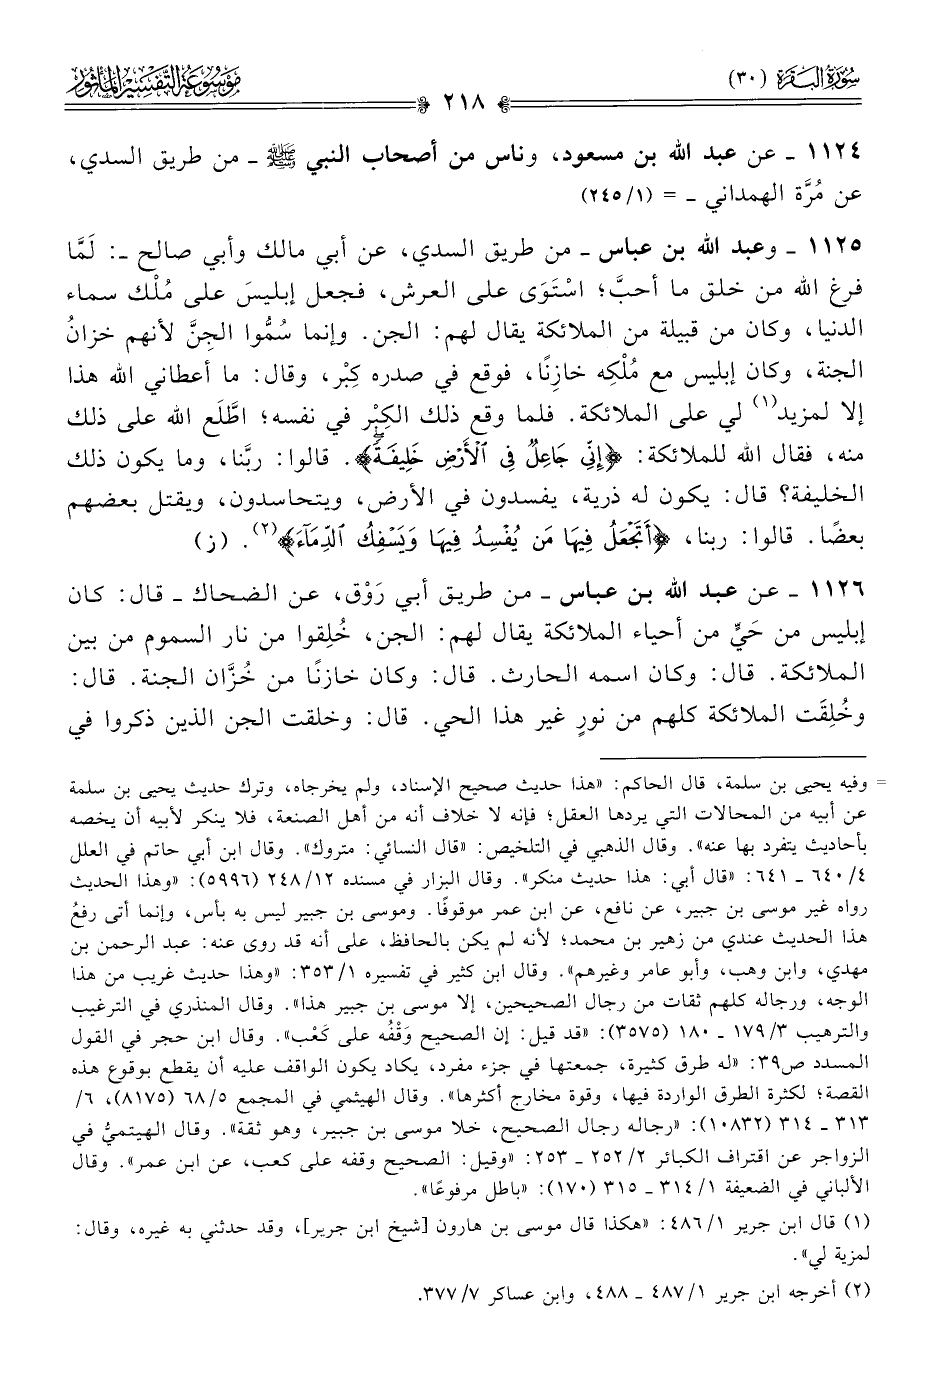 سورة البقرة (٣٠)
موسوعة التفسير المأثور
٢١٨
١١٢٤ ـ عن عبد الله بن مسعود، وناس من أصحاب النبي ﷺ ـ من طريق السدي،
عن مُرَّة الهمداني ـ = (١/ ٢٤٥)
١١٢٥ ـ وعبد الله بن عباس ـ من طريق السدي، عن أبي مالك وأبي صالح ـ: لَمَّا
فرغ الله من خلق ما أحبَّ؛ اسْتَوَى على العرش، فجعل إبليسَ على مُلْك سماء
الدنيا، وكان من قبيلة من الملائكة يقال لهم: الجن. وإنما سُمُّوا الجِنَّ لأنهم خزانُ
الجنة، وكان إبليس مع مُلْكِه خازِنًا، فوقع في صدره كِبْر، وقال: ما أعطاني الله هذا
إلا لمزيد(١) لي على الملائكة. فلما وقع ذلك الكِبْر في نفسه؛ اطَّلَع الله على ذلك
منه، فقال الله للملائكة: ﴿إِنِّي جَاعِلٌ فِي ٱلْأَرْضِ خَلِيفَةً﴾. قالوا: ربَّنا، وما يكون ذلك
الخليفة؟ قال: يكون له ذرية، يفسدون في الأرض، ويتحاسدون، ويقتل بعضهم
بعضًا. قالوا: ربنا، ﴿أَتَجْعَلُ فِيهَا مَن يُفْسِدُ فِيهَا وَيَسْفِكُ ٱلدِّمَآءَ﴾(٢). (ز)
١١٢٦ ـ عن عبد الله بن عباس ـ من طريق أبي رَوْق، عن الضحاك ـ قال: كان
إبليس من حَيٍّ من أحياء الملائكة يقال لهم: الجن، خُلِقوا من نار السموم من بين
الملائكة. قال: وكان اسمه الحارث. قال: وكان خازنًا من خُزَّان الجنة. قال:
وخُلِقَت الملائكة كلهم من نورٍ غير هذا الحي. قال: وخلقت الجن الذين ذكروا في
= وفيه يحيى بن سلمة، قال الحاكم: «هذا حديث صحيح الإسناد، ولم يخرجاه، وترك حديث يحيى بن سلمة
عن أبيه من المحالات التي يردها العقل؛ فإنه لا خلاف أنه من أهل الصنعة، فلا ينكر لأبيه أن يخصه
بأحاديث يتفرد بها عنه». وقال الذهبي في التلخيص: «قال النسائي: متروك». وقال ابن أبي حاتم في العلل
٤/ ٦٤٠ ـ ٦٤١: «قال أبي: هذا حديث منكر». وقال البزار في مسنده ١٢/ ٢٤٨ (٥٩٩٦): «وهذا الحديث
رواه غير موسى بن جبير، عن نافع، عن ابن عمر موقوفًا. وموسى بن جبير ليس به بأس، وإنما أتى رفعُ
هذا الحديث عندي من زهير بن محمد؛ لأنه لم يكن بالحافظ، على أنه قد روى عنه: عبد الرحمن بن
مهدي، وابن وهب، وأبو عامر وغيرهم». وقال ابن كثير في تفسيره ١/ ٣٥٣: «وهذا حديث غريب من هذا
الوجه، ورجاله كلهم ثقات من رجال الصحيحين، إلا موسى بن جبير هذا». وقال المنذري في الترغيب
والترهيب ٣/ ١٧٩ ـ ١٨٠ (٣٥٧٥): «قد قيل: إن الصحيح وَقْفُه على كَعْب». وقال ابن حجر في القول
المسدد ص٣٩: «له طرق كثيرة، جمعتها في جزء مفرد، يكاد يكون الواقف عليه أن يقطع بوقوع هذه
القصة؛ لكثرة الطرق الواردة فيها، وقوة مخارج أكثرها». وقال الهيثمي في المجمع ٥/ ٦٨ (٨١٧٥)، ٦/
٣١٣ ـ ٣١٤ (١٠٨٣٢): «رجاله رجال الصحيح، خلا موسى بن جبير، وهو ثقة». وقال الهيتميُّ في
الزواجر عن اقتراف الكبائر ٢/ ٢٥٢ ـ ٢٥٣: «وقيل: الصحيح وقفه على كعب، عن ابن عمر». وقال
الألباني في الضعيفة ١/ ٣١٤ ـ ٣١٥ (١٧٠): «باطل مرفوعًا».
(١) قال ابن جرير ١/ ٤٨٦: «هكذا قال موسى بن هارون [شيخ ابن جرير]، وقد حدثني به غيره، وقال:
لمزية لي».
(٢) أخرجه ابن جرير ١/ ٤٨٧ ـ ٤٨٨، وابن عساكر ٧/ ٣٧٧.